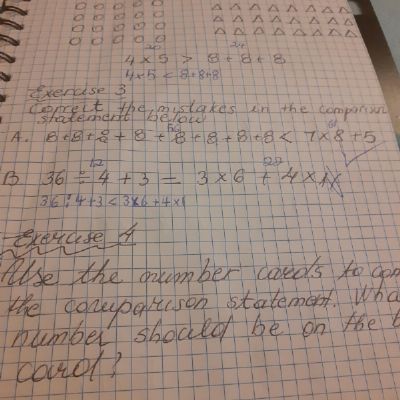 20 24
4 × 5 > 8 + 8 + 8
4×5 < 8+8+8
Exercise 3
Correct the mistakes in the comparison
statement below
A. 8 + 8 + 8 + 8 + 8 + 8 + 8 + 8 < 7 × 8 + 5
B 36 ÷ 4 + 3 = 3 × 6 + 4 ×
36 : 4 + 3 < 3×6 + 4×1
Exercise 4
Use the number cards to
the comparison statement.
number should be on the
card?